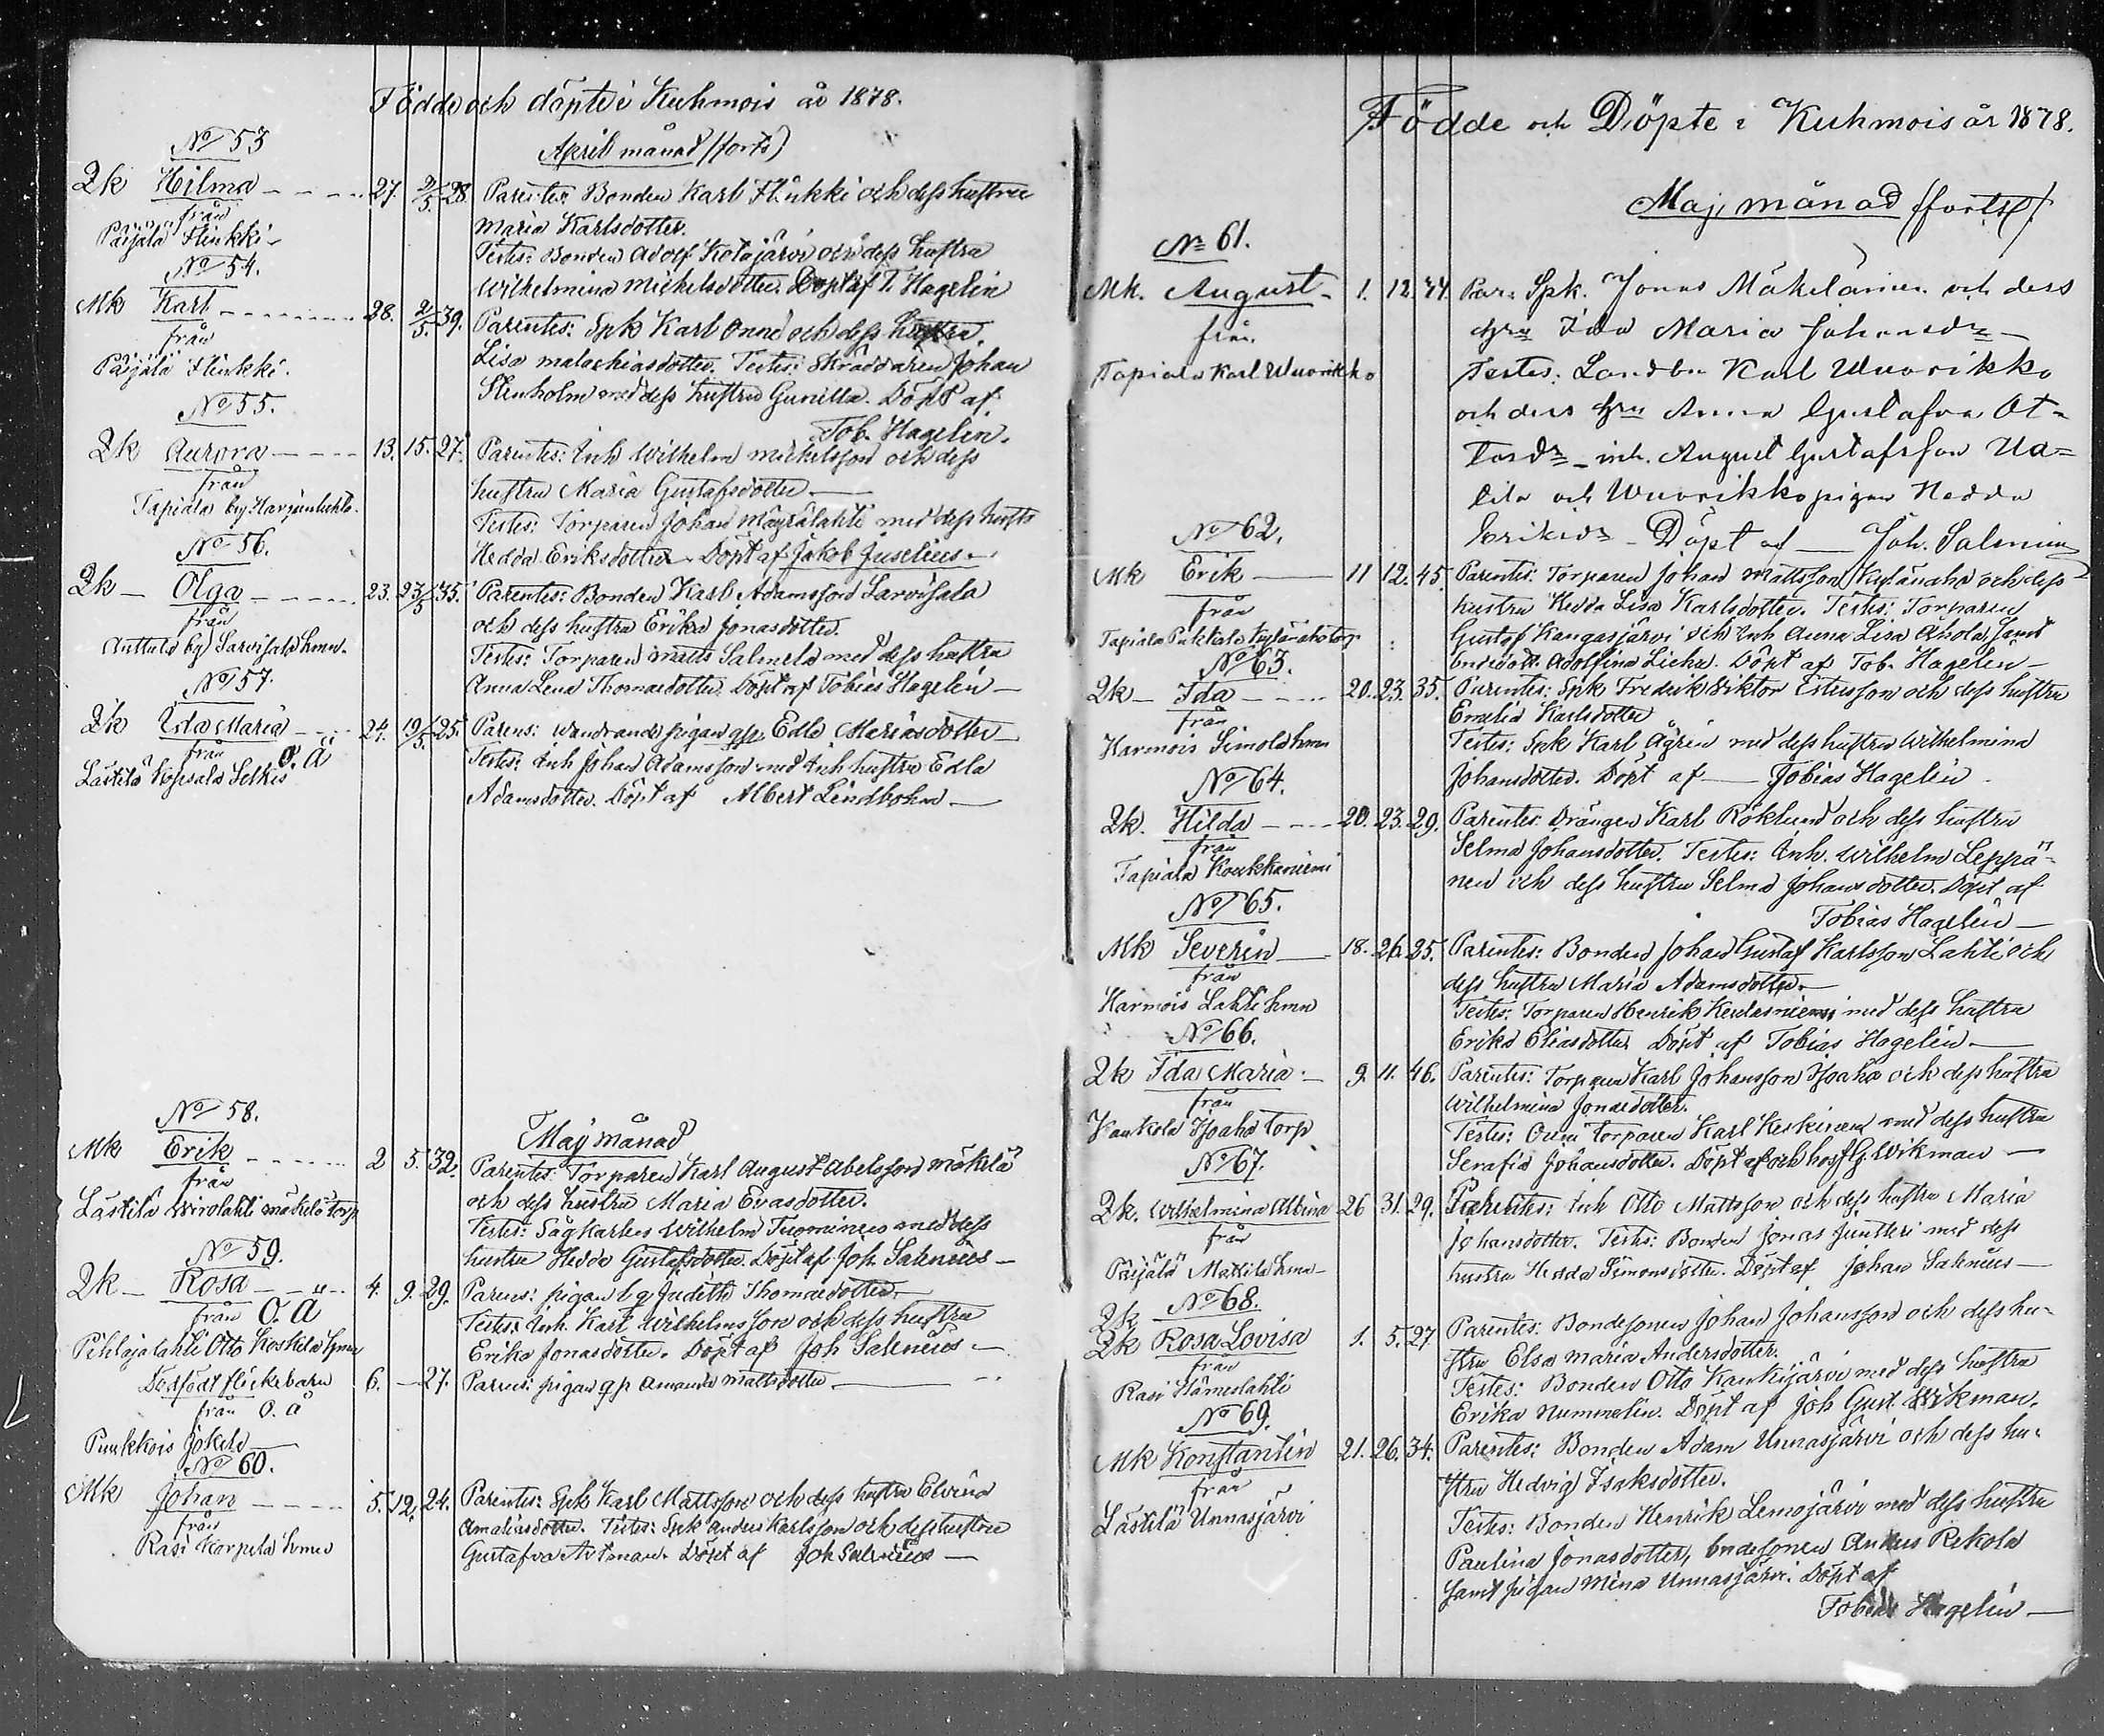 Födde och döpte i Kuhmois år 1878.
April månad (forts)
No 53
Qk Hilma 27. 2/5. 28. Parentes: Bonden Karl Flinkki och dess hustru
från Maria Karlsdotter.
Päijälä Flinkki Testes: Bonden Adolf Kotajärvi och dess hustru
Wilhelmina Michelsdotter. Döpt af T. Hagelin
No 54.
Mk Karl 28. 2/5. 39. Parentes: Spk Karl Onni och dess hustru
från Lisa Malachiasdotter. Testes: Skräddaren Johan
Päijälä Flinkki. Stenholm med dess hustru Gunilla. Döpt af
Tob. Hagelin.
No 55.
Qk Aurora 13. 15. 27. Parentes: Inh Wilhelm Michelsson och dess
från hustru Maria Gustafsdotter
Tapiala by Harjunlahti. Testes: Torparen Johan Mäyrälahti med dess hustru
Hedda Eriksdotter Döpt af Jakob Juselius.
No 56.
Qk Olga 23. 23/5 35. Parentes: Bonden Karl Adamsson Sarvisala
från och dess hustru Erika Jonasdotter.
Anttula by Sarvisala hmn. Testes: Torparen Matts Salmela med dess hustru
Anna Lena Thomasdotter. Döpt af Tobias Hagelin
No 57.
Qk Ida Maria 24. 19/5. 25. Parens: wandrande pigan qp. Edla Mariasdotter
från o. ä Testes: Inh Johan Adamsson med Inh hustru Edla
Lästilä Kopsala Selkis Adamsdotter. Döpt af Albert Lindbohm
Maj månad
No 58.
Mk Erik 2 5. 32. Parentes: Torparen Karl August Abelsson Mäkelä
från och dess hustru Maria Evasdotter.
Lästilä Wirolahti Mäkelä torp Testes: Sågkarlen Wilhelm Tuominen med dess
hustru Hedda Gustafsdotter. Döpt af Joh. Salenius
No 59.
Qk Rosa 4. 9. 29. Parens: pigan Judith Thomasdotter
från O. Ä Testes: Inh. Karl Wilhelmsson och dess hustru
Pihlajalahti Otto Koskela hmn Erika Jonasdotter. Döpt af Joh Salenius
Dödfödt flickebarn 6. — 27. Parens: pigan qp Amanda Mattsdotter
från o. ä
Puukkois Jokela
No 60.
Mk Johan 5. 12. 24. Parentes: Spk Karl Mattsson och dess hustru Elvina
från Amaliasdotter. Testes: Spk Anders Karlsson och dess hustru
Rasi Korpela hmn Gustafva Döpt af Joh Salenius
Födde och Döpte i Kuhmois år 1878.
Maj månad (forts)
No 61.
Mk. August 1. 12. 44. Par: Spk. Jonas Mäkeläinen och dess
från hru Ida Maria Johansdr
Tapiala Karl Wuorikko Testes: Landbn Karl Wuorikko
och dess hru Anna Gustafva Ot-
tosdr inh. August Gustafsson Ua-
tila och Wuorikko pigan Hedda
Eriksdr Döpt af Joh. Salenius
No 62.
Mk Erik 11 12. 45 Parentes: Torparen Johan Mattsson Kylänaho och dess
från hustru Hedda Lisa Karlsdotter. Testes: Torparen
Tapiala Pukkala Kylänaho torp Gustaf Kangasjärvi och Inh Anna Lisa Ahola, samt
Adolfina Döpt af Tob. Hagelin
No 63.
Qk Ida 20. 23. 35. Parentes: Spk Fredrik Viktor och dess hustru
från Emelia Karlsdotter
Harmois Simola hmn Testes: Spk Karl Ågren med dess hustru Wilhelmina
Johansdotter. Döpt af Tobias Hagelin
No 64.
Qk. Hilda 20. 23. 29. Parentes: Drängen Karl Röklund och dess hustru
från Selma Johansdotter. Testes: Inh. Wilhelm Leppä-
Tapiala Koukkaniemi nen och dess hustru Selma Johansdotter. Döpt af
Tobias Hagelin
No 65.
Mk Severin 18. 26. 25. Parentes: Bonden Johan Gustaf Karlsson Lahti och
från dess hustru Maria Adamsdotter
Harmois Lahti hmn Testes: Torparen Henrik med dess hustru
Erika Eliasdotter Döpt af Tobias Hagelin
No 66.
Qk Ida Maria 9. 11. 46. Parentes: Torparen Karl Johansson Isoaho och dess hustru
från Wilhelmina Jonasdotter.
Kaukola Isoaho torp Testes: torparen Karl Keskinen med dess hustru
Serafia Johansdotter. Döpt af och hos J. G. Wikman
No 67.
Qk. Wilhelmina Albina 26 31. 29. Parentes: Inh Otto Mattsson och dess hustru Maria
från Johansdotter. Testes: Bonden Jonas Junttri med dess
Päijälä Mattila hmn hustru Hedda Simonsdotter. Döpt af Johan Salenius
No 68.
Qk
Qk Rosa Lovisa 1. 5. 27 Parentes: Bondesonen Johan Johansson och dess hu-
från stru Elsa Maria Andersdotter.
Rasi Hämeslahti Testes: Bonden Otto Kaukijärvi med dess hustru
Erika Nummelin. Döpt af Joh Gust. Wikman.
No 69.
Mk Konstantin 21. 26. 34. Parentes: Bonden Adam Unnasjärvi och dess hu-
från stru Hedvig Isaksdotter.
Lästilä Unnasjärvi Testes: Bonden Henrik Lemojärvi med dess hustru
Paulina Jonasdotter, bndesonen Rekola
samt pigan Mina Unnasjärvi. Döpt af
Tobias Hagelin